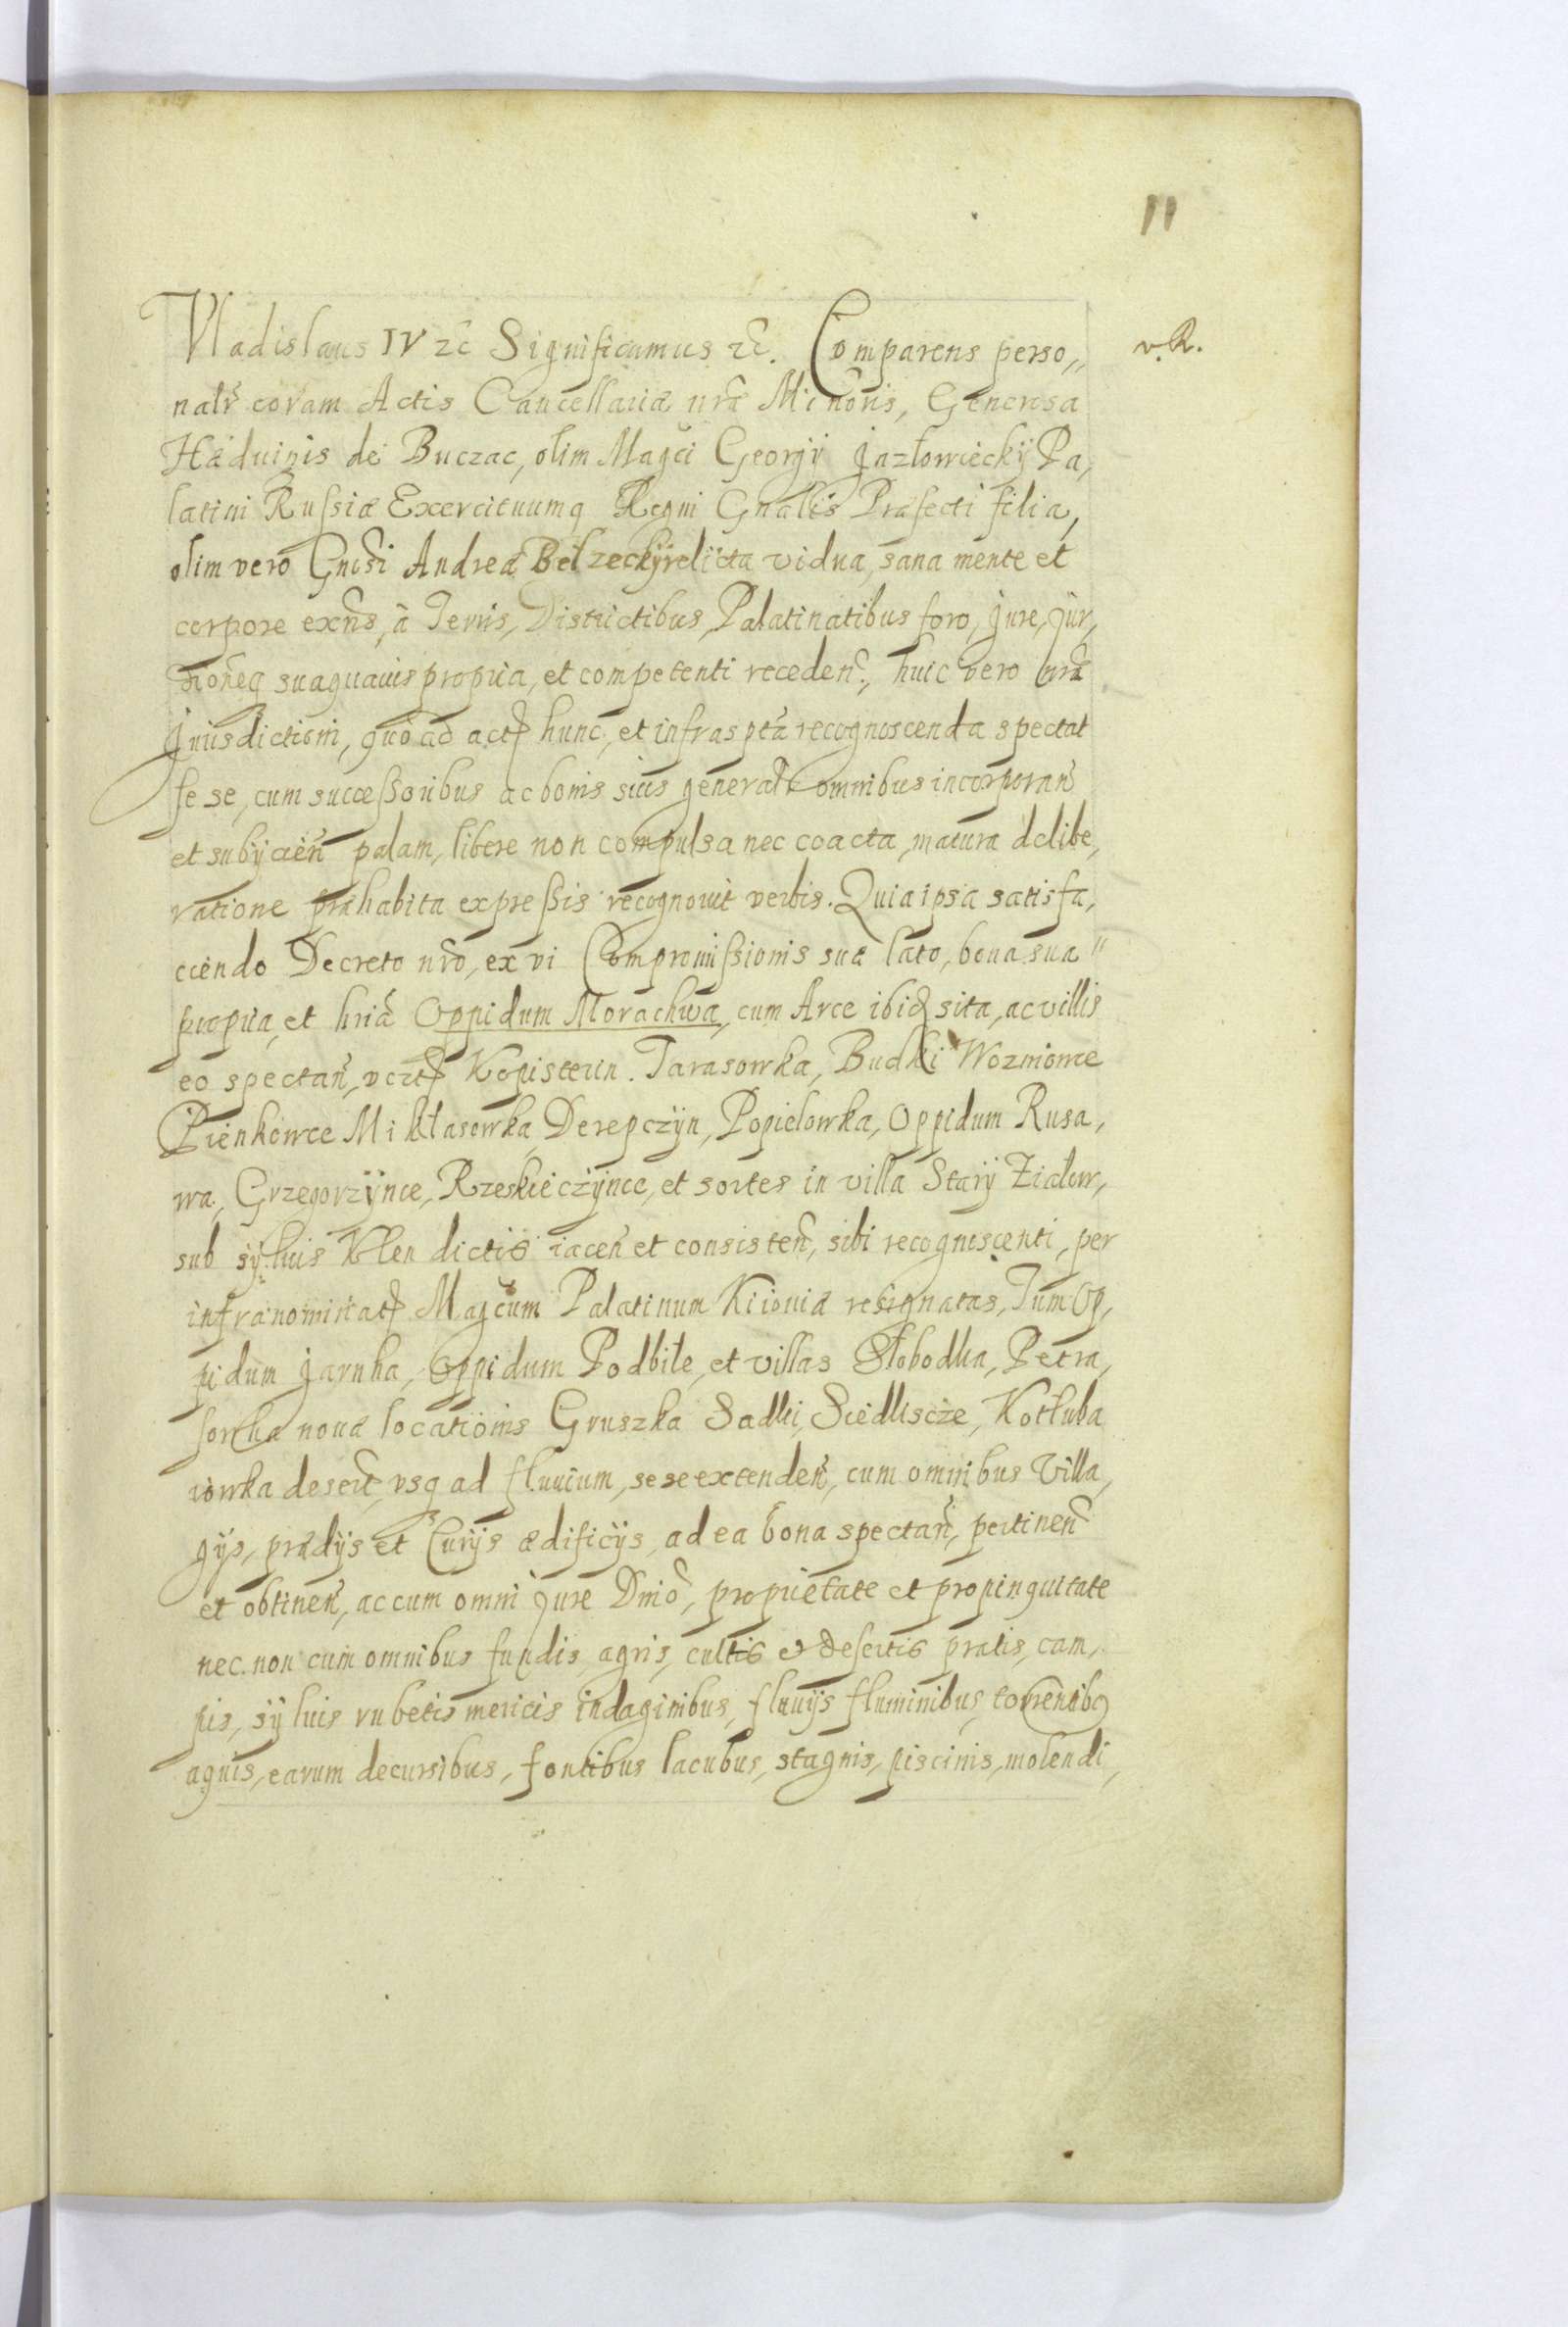 11
Vladislaus IV zc̃ Significamus zc̃. Comparens perso„
v. R.
nalr̃ coram Actis Cancellariæ nr̃æ Minoris, Generosa
Hæduigis de Buczac, olim Magci Georgij Jazłowiecky Pa,
latini Russiæ Exercituumq Regni Gnalis Præfecti filia,
olim vero Gnosi Andreæ Bełzecky relicta vidua, sana mente et
corpore exñs, à Terris, Districtibus, Palatinatibus foro, Jure, Jur,
dioneq suaquauis propria, et competenti receden̄, huic vero nr̃æ
Jurisdictioni, quo ad actũ hunc, et infrasptã recognoscenda spectat
se se, cum successoribus ac bonis suis generalr̃ omnibus incorporañ
et subijcieñ palam, libere non compulsa nec coacta, matura delibe,
ratione præhabita expressis recognouit verbis. Quia ipsa satisfa,
ciendo Decreto nr̃o, ex vi Compromissionis suæ lato, bona sua "
propria, et hriã Oppidum Morachwa, cum Arce ibid sita, ac villis
eo spectañ, vcztũ Kopisterin. Tarasowka, Budki Wozniowce
Pienkowce Mikłasowka, Derepczyn, Popielowka, Oppidum Rusa,
wa, Grzegorzÿnce, Rzeskieczÿnce, et sortes in villa Starÿ Ziałow,
sub syluis Klen dictis iaceñ et consisteñ, sibi recognoscenti, per
infranominatũ Magcum Palatinum Kiiouiæ resignatas, Tum Op,
pidum Jarnha, Oppidum Podbile, et villas Słobodka, Petra,
sowka nouæ locationis Gruszka Sadki, Siedliscze, Kotłuba
iowka deserť, vsq ad fluuium, sese extendeñ, cum omnibus Villa,
gijs, prædijs et Curijs ædificijs, ad ea bona spectañ, pertineñ
et obtineñ, ac cum omni Jure Dnio, proprietate et propinquitate
nec non cum omnibus fundis agris, cultis et desertis pratis, cam,
pis, syluis rubetis mericis indaginibus, fluuijs fluminibus, torrentibq
aquis, earum decursibus, fontibus lacubus, stagnis, piscinis, molendi,